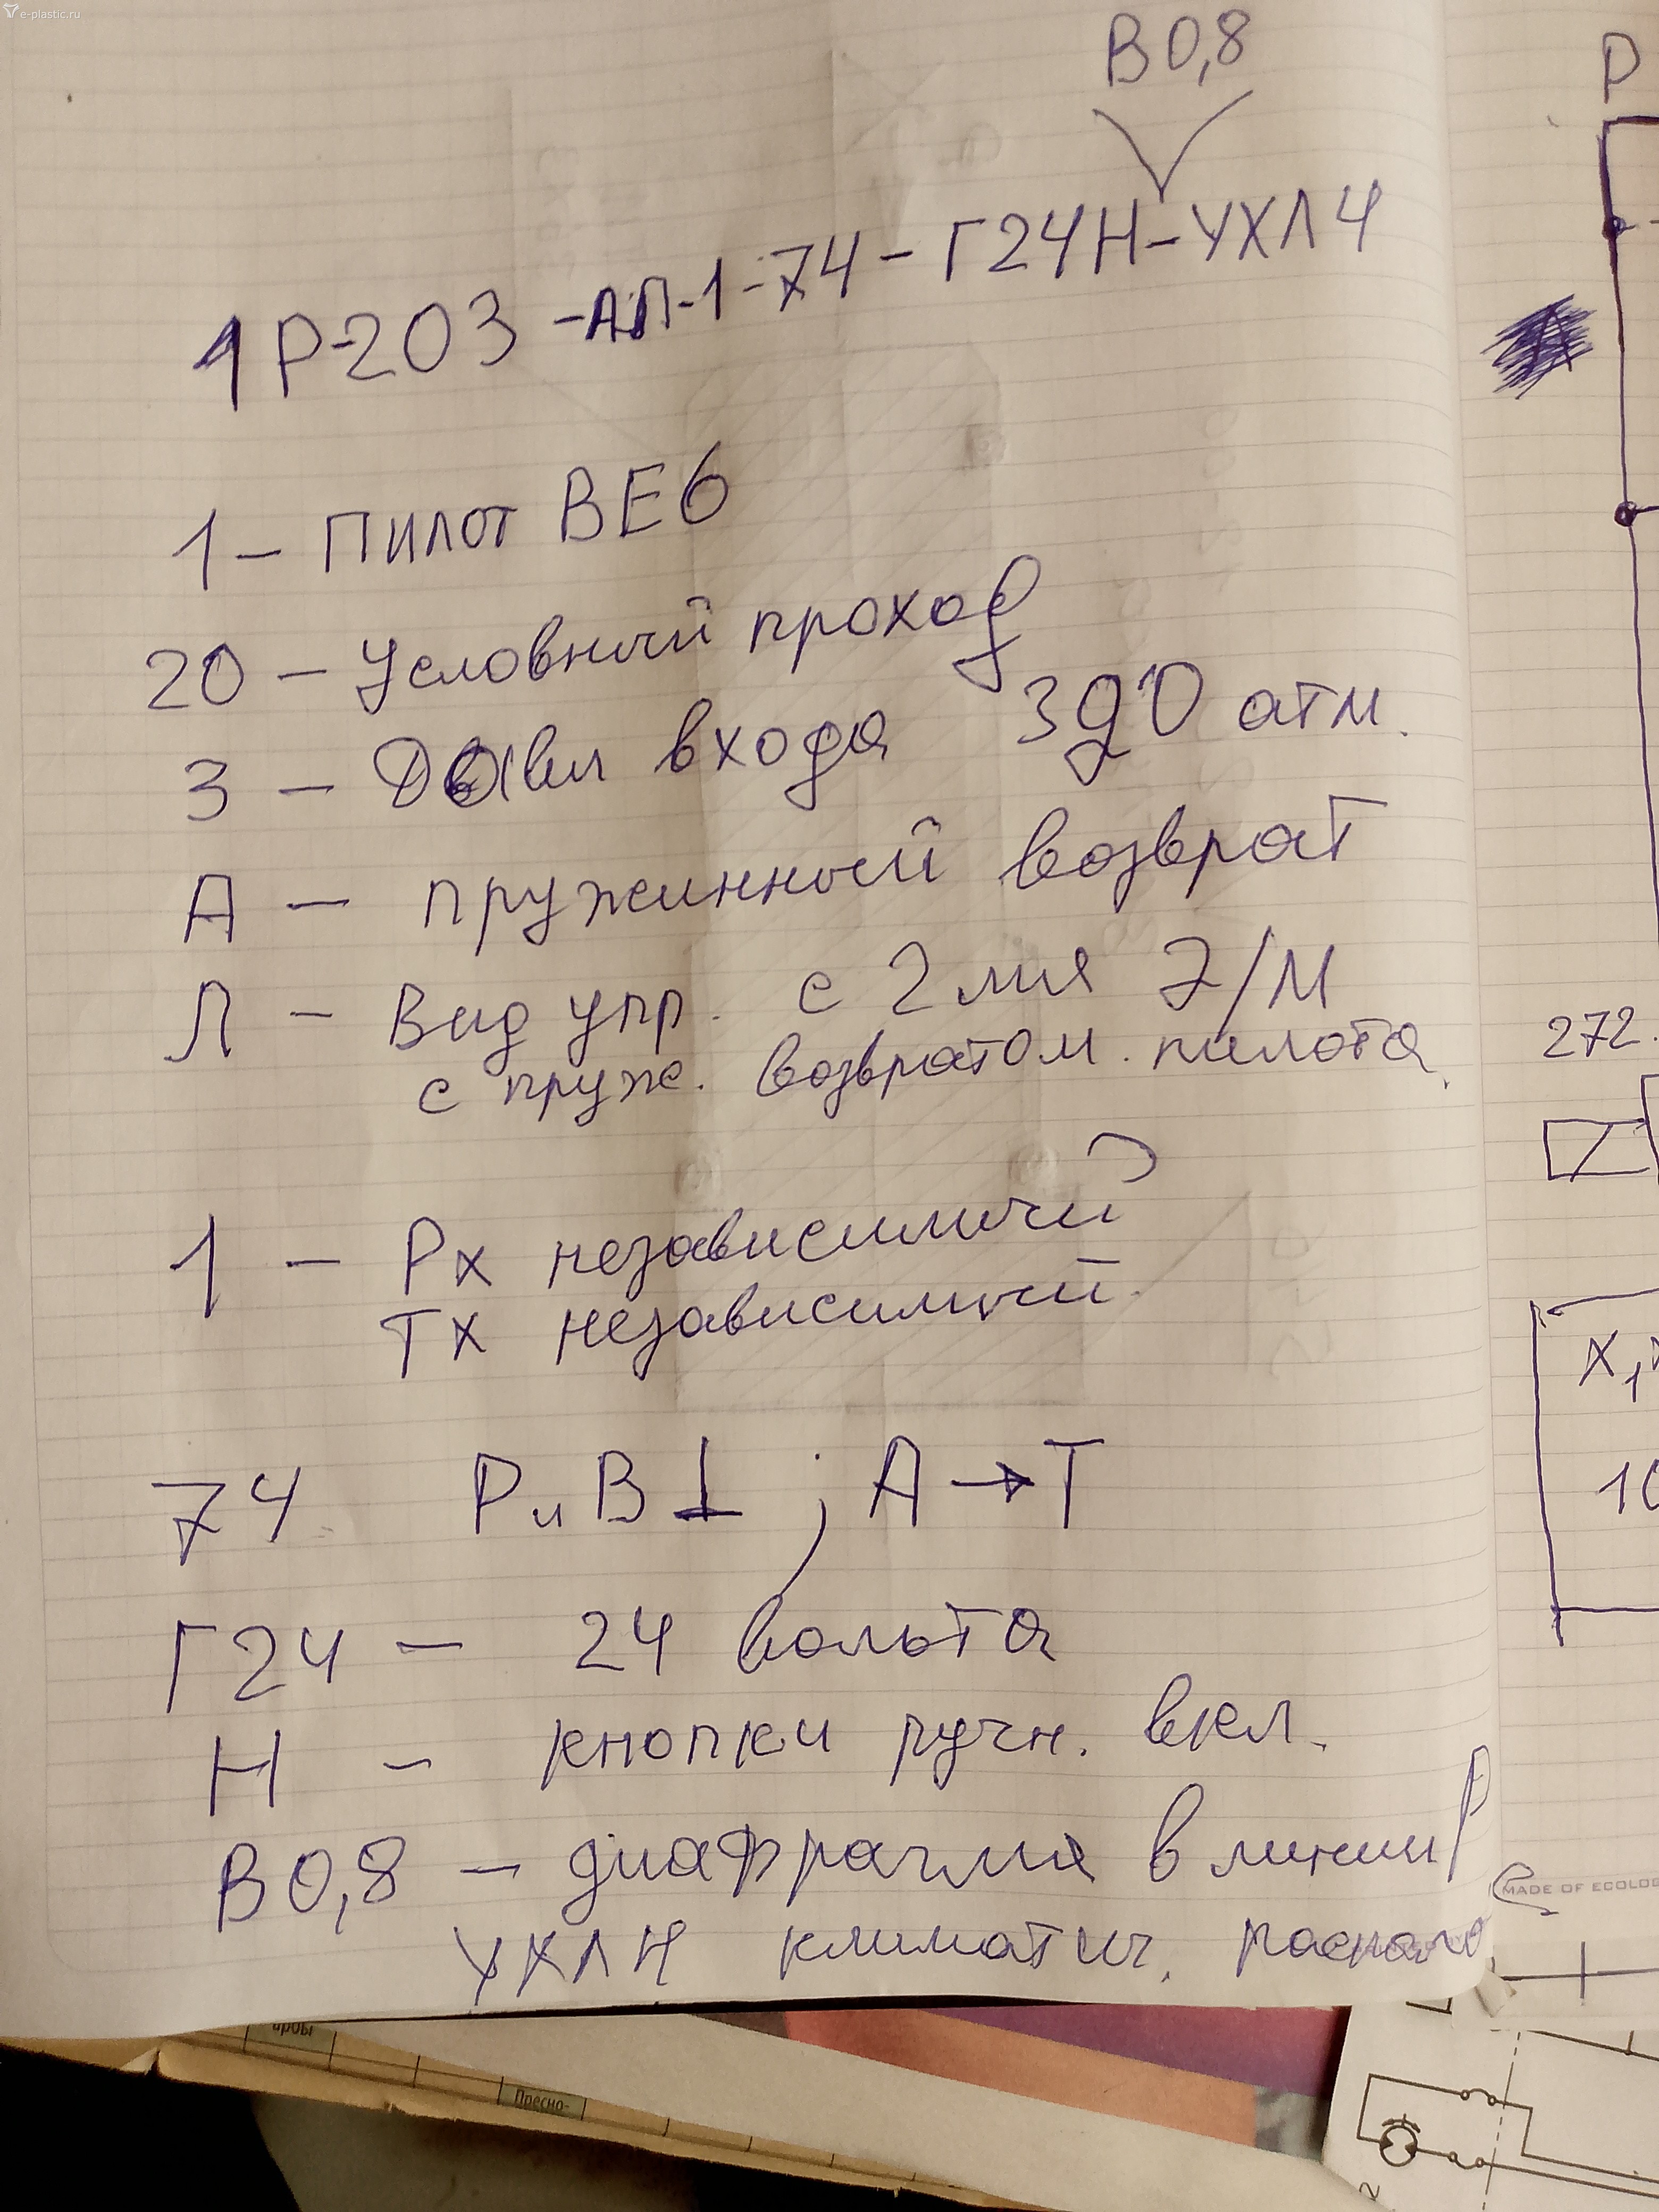 e-plastic.ru
В0,8
1Р203-АЛ-1-74-Г24Н-УХЛ4
1 - Пилот ВЕ6
20 - Условный проход
3 - Давл входа 320 атм.
А - пружинный возврат
Л - Вид упр. с 2 мя Э/М
с пруж. возвратом. пилота.
1 - Рх независимый
Тх независимый.
74 Р и В⊥ ; А→Т
Г24 - 24 вольта
Н - кнопки ручн. вкл.
В0,8 - диафрагма в линии Р
УХЛ4 климатич.
Р
272.
10
MADE OF ECOLOG
Пресно-